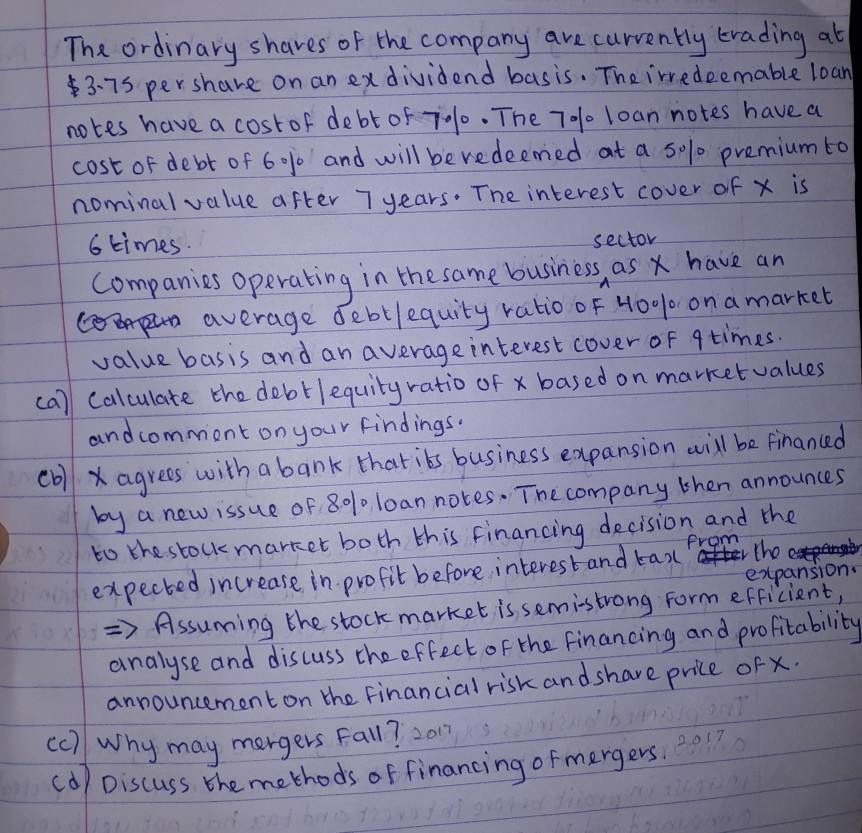 The ordinary shares of the company are currently trading at
$3.75 per share on an ex dividend basis. The irredeemable loan
notes have a cost of debt of 7%. The 7% loan notes have a
cost of debt of 6% and will be redeemed at a 5% premium to
nominal value after 7 years. The interest cover of X is
6 times.
Companies operating in the same business sector as X have an
average debt/equity ratio of 40% on a market
value basis and an average interest cover of 9 times.
(a) Calculate the debt/equity ratio of X based on market values
and comment on your findings.
(b) X agrees with a bank that its business expansion will be financed
by a new issue of 8% loan notes. The company then announces
to the stock market both this financing decision and the
expected increase in profit before interest and tax from the
expansion.
=> Assuming the stock market is semi-strong form efficient,
analyse and discuss the effect of the financing and profitability
announcement on the financial risk and share price of X.
(c) Why may mergers Fall? 2017
(d) Discuss the methods of financing of mergers. 2017